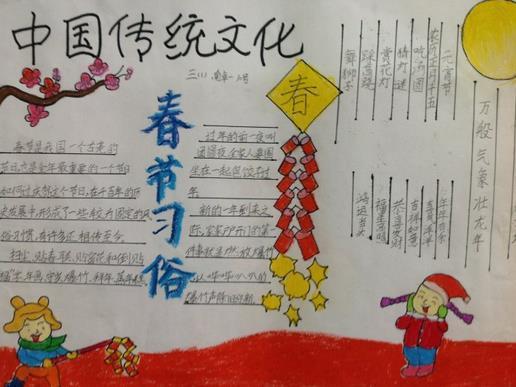 中国传统文化
春节习俗
春
春节是我国一个古老的
节日,也是全年最重要的一个节日
如何过庆祝这个节日,在千百年的历
史发展中,形成了一些较为固定的风
俗习惯,有许多还相传至今。
扫尘,贴春联,贴窗花和倒贴
过年的前一夜叫
团圆夜
坐在一起包饺子
过年
新的一年到来之
际,家家户户开门的第一
件事就是燃放爆竹
元宵节
农历正月十五
吃汤圆
猜灯谜
赏花灯
踩高跷
舞狮子
万般气象壮龙年
年年有余
喜气洋洋
吉祥如意
恭喜发财
福星高照
鸿运当头